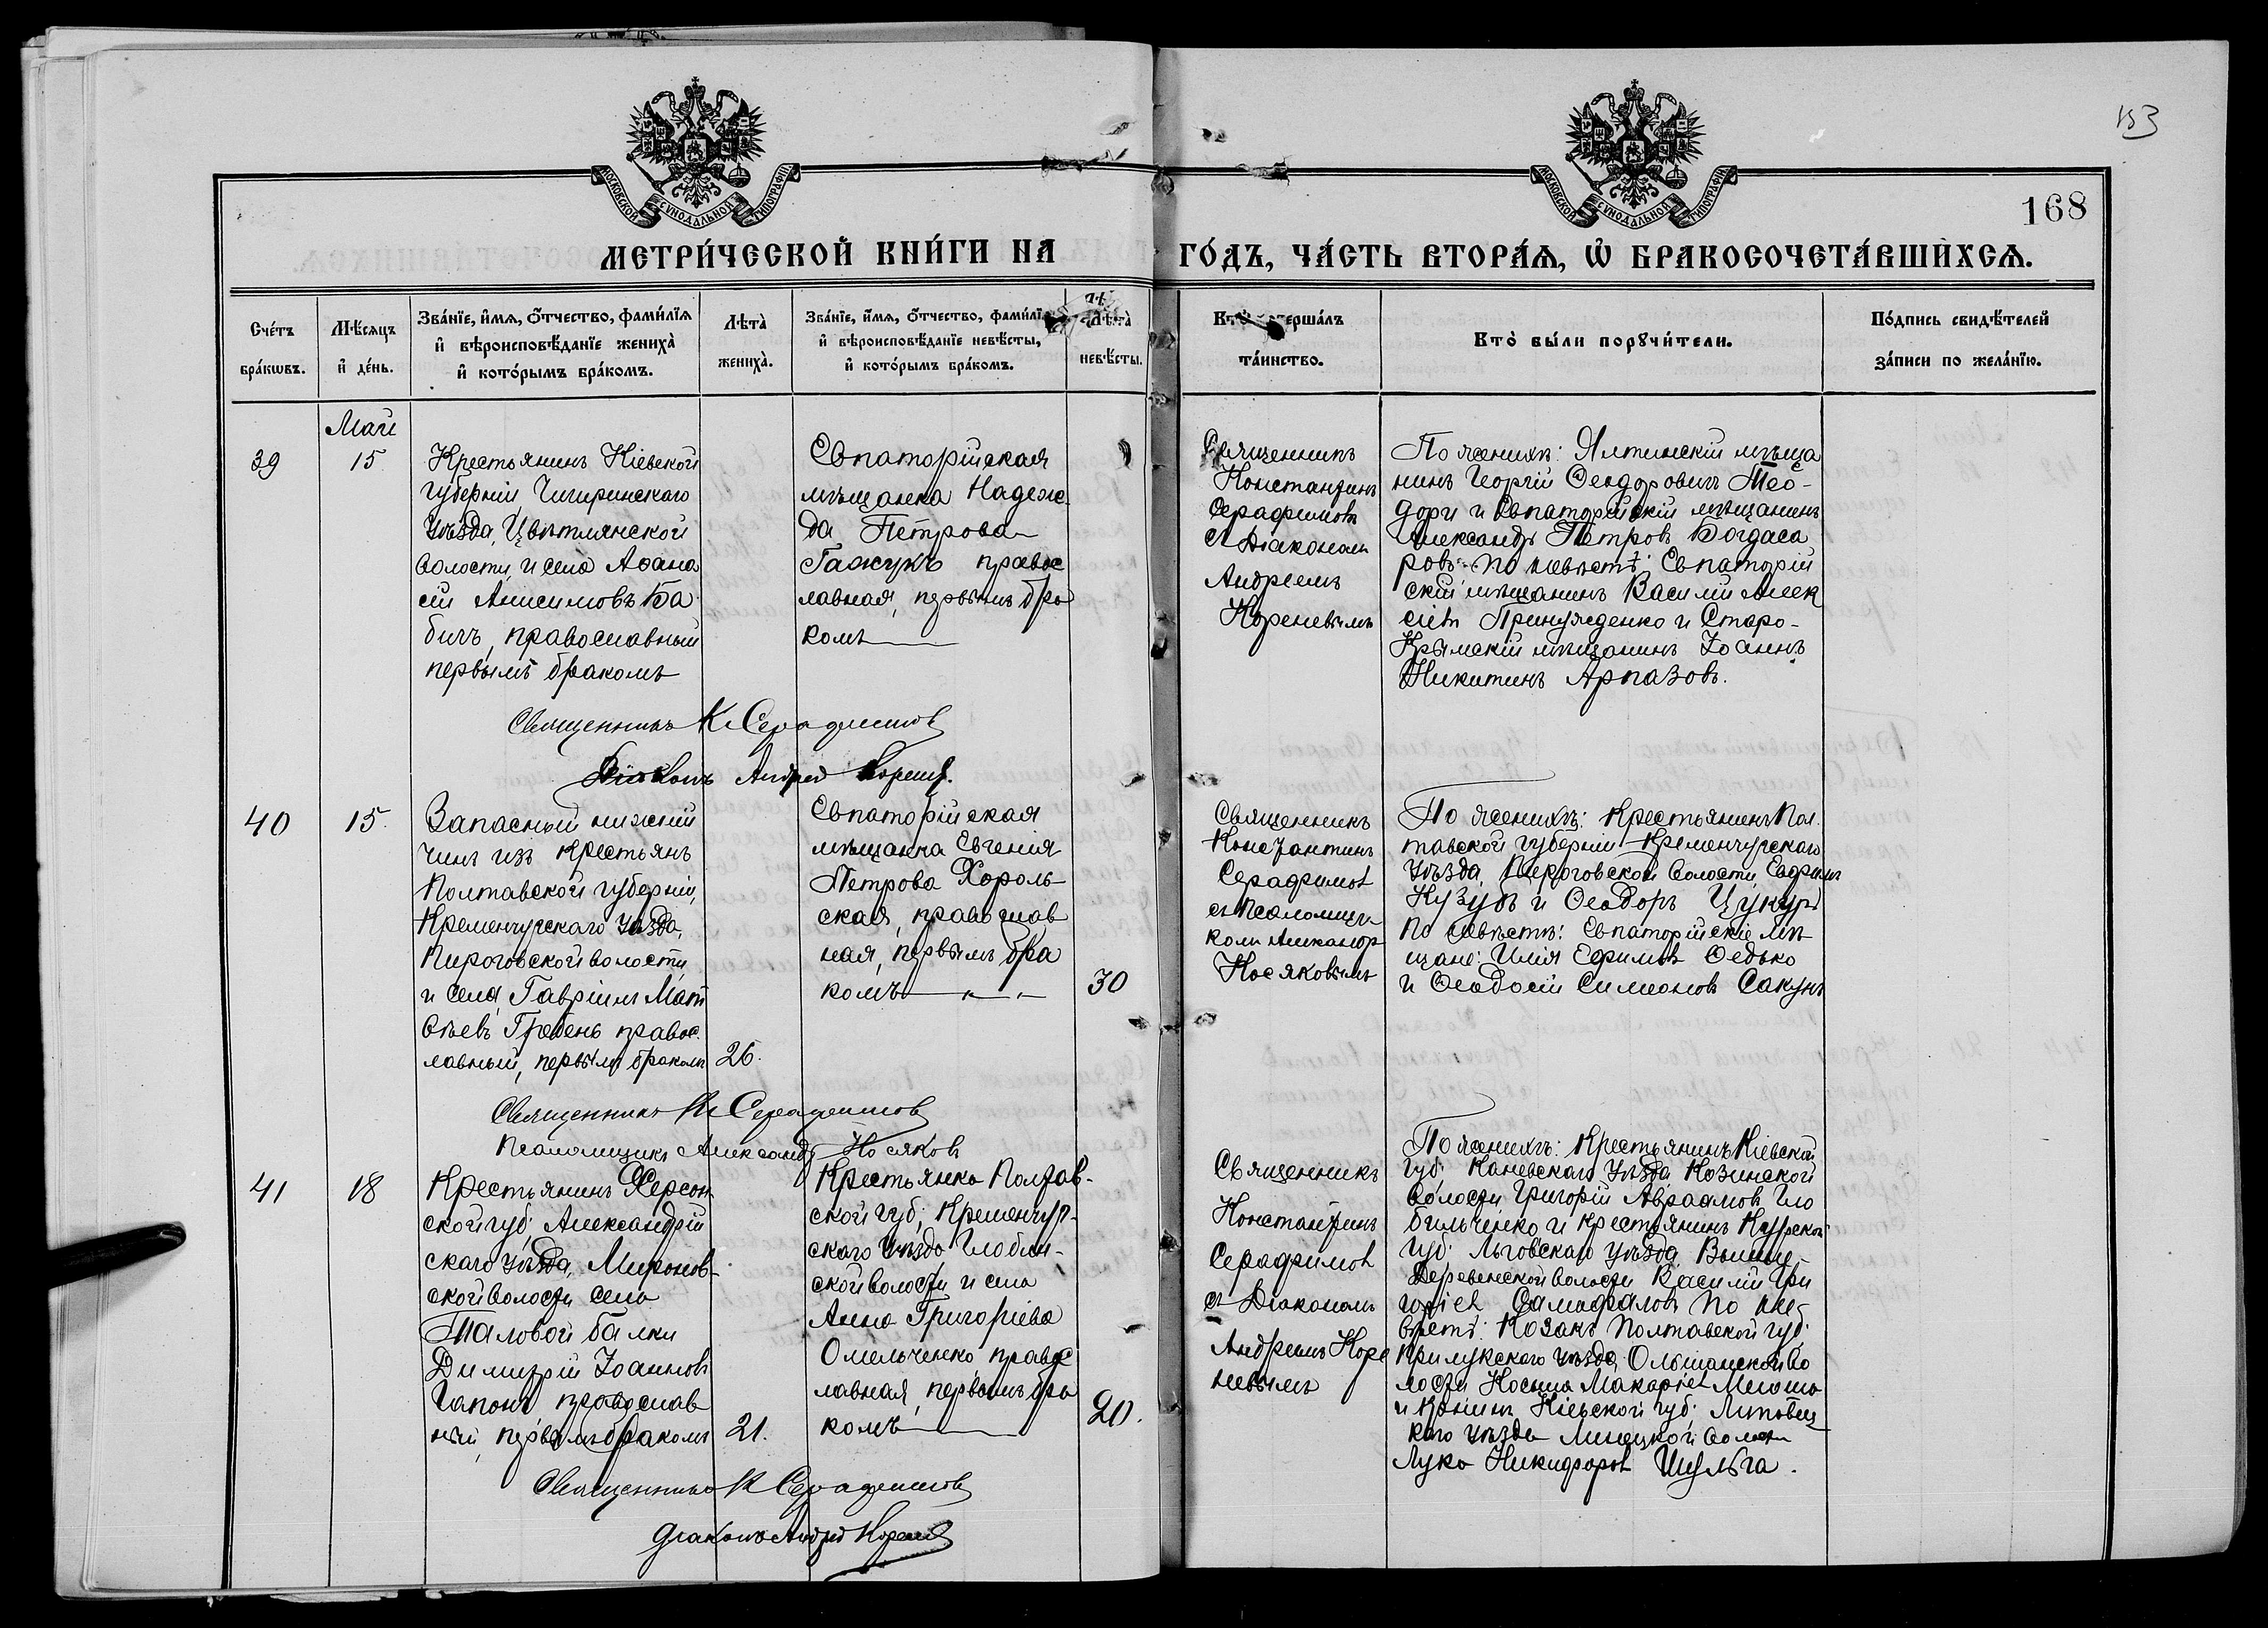 153
168
МОСКОВСКОЙ СѴНОДАЛЬНОЙ ТИПОГРАФІИ
МОСКОВСКОЙ СѴНОДАЛЬНОЙ ТИПОГРАФІИ
МЕТРИ́ЧЕСКОЙ КНИ́ГИ НА ГО́ДЪ, ЧА́СТЬ ВТОРА́Ѧ, Ѽ БРАКОСОЧЕТА́ВШИХСѦ.
Сче́тъ
бра́кѡвъ.
Мѣ́сяцъ
и҆ де́нь.
Зва́нїе, и҆́мѧ, ѻ҆́тчество, фами́лїѧ
и҆ вѣроисповѣ́данїе жениха̀
и҆ кото́рымъ бра́комъ.
Лѣта̀
жениха̀.
Зва́нїе, и҆́мѧ, ѻ҆́тчество, фами́лїѧ
и҆ вѣроисповѣ́данїе невѣ́сты,
и҆ кото́рымъ бра́комъ.
Лѣта̀
невѣ́сты.
Кто̀ соверша́лъ
та́инство.
Кто̀ бы́ли порꙋчи́тели.
По́дпись свидѣ́телей
за́писи по жела́нїю.
Май
39
15
Крестьянинъ Кіевской
губерніи Чигиринскаго
уѣзда, Цвѣтлянской
волости и села Аѳана
сій Анисимовъ Ба
бичъ, православный
первымъ бракомъ
Евпаторійская
мѣщанка Надеж
да Петрова
Гажукъ правос
лавная, первымъ бра
комъ
Священникъ
Константинъ
Серафимовъ
съ Діакономъ
Андреемъ
Кореневымъ
По женихѣ: Ялтинскій мѣща
нинъ Георгій Ѳеодоровичъ Тео-
дори и Евпаторійскій мѣщанинъ
Александръ Петровъ Богдаса
ровъ. По невѣстѣ: Евпаторій
скій мѣщанинъ Василій Алек
сіевъ и Старо-
Крымскій мѣщанинъ Іоаннъ
Никитинъ Арпазовъ.
Священникъ К Серафимовъ
Діаконъ Андрей Коренев.
40
15.
Запасный нижній
чинъ изъ крестьянъ
Полтавской губерніи,
Кременчугскаго уѣзда,
Пироговской волости
и села, Гавріилъ Мат
ѳѣевъ Гребень правос
лавный, первымъ бракомъ
26.
Евпаторійская
мѣщанка Евгенія
Петрова Хороль-
ская, православ
ная, первымъ бра
комъ
30
Священникъ
Константинъ
Серафимов
съ Псаломщи
комъ Александр
Носяковымъ
По женихѣ: Крестьянинъ Пол
тавской губерніи Кременчугскаго
уѣзда, Пироговской волости, Евфимъ
Кузубъ и Ѳеодоръ Цукуръ
По невѣстѣ: Евпаторійскіе мѣ
щане: Илія Ефимовъ Ѳедько
и Ѳеодосій Симеоновъ Сакунъ
Священникъ К Серафимовъ
Псаломщикъ Александръ Носяковъ
41
18
Крестьянинъ Херсон
ской губ, Александрій
скаго уѣзда, Миронов-
ской волости села
Таловой балки
Димитрій Іоанновъ
Гапонъ православ
ный, первымъ бракомъ
21.
Крестьянка Полтав-
ской губ; Кременчуг-
скаго уѣзда Глобин-
ской волости и села
Анна Григоріева
Омельченко правос
лавная, первымъ бра
комъ
20.
Священникъ
Константинъ
Серафимов
съ Діакономъ
Андреемъ Коре
невымъ
По женихѣ: Крестьянинъ Кіевской
губ; Каневскаго уѣзда Козинской
волости Григорій Авраамовъ Гло
бильченко и крестьянинъ Курской
губ. Льговскаго уѣзда Вышне-
Деревенской волости Василій Гри
горіев Самофаловъ По не-
вѣстѣ: Козакъ Полтавской губ;
Прилукского уѣзда, Ольшанской во
лости Косьма Макаріев
и Кр-нинъ Кіевской губ; Липовец
каго уѣзда волости
Лука Никифоров Шульга.
Священникъ К Серафимовъ
Діаконъ Андрей Коренев